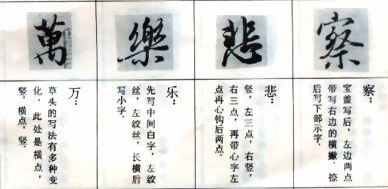 察
察：
宝盖写后，左边两点
带写右边的横撇。捺
后写下部示字。
悲
悲：
竖，左三点，右竖，
右三点，再带心字左
点再心钩后两点。
樂
乐：
先写中间白字，左绞
丝，左绞丝，长横后
写小字。
萬
万：
草头的写法有多种变
化，此处是横点，
竖，横点，竖。